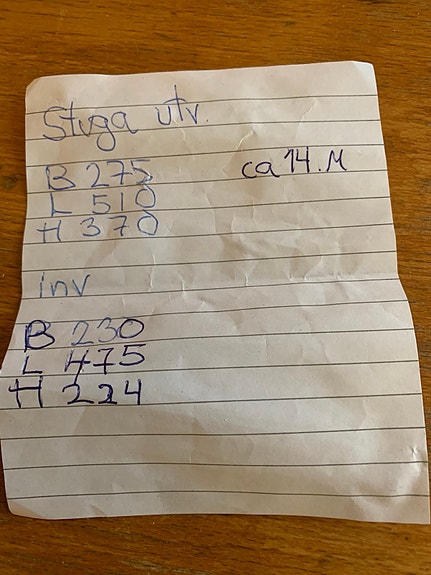 Stuga utv.
B 275
ca 14. M
L 510
H 370
inv
B 230
L 475
H 224